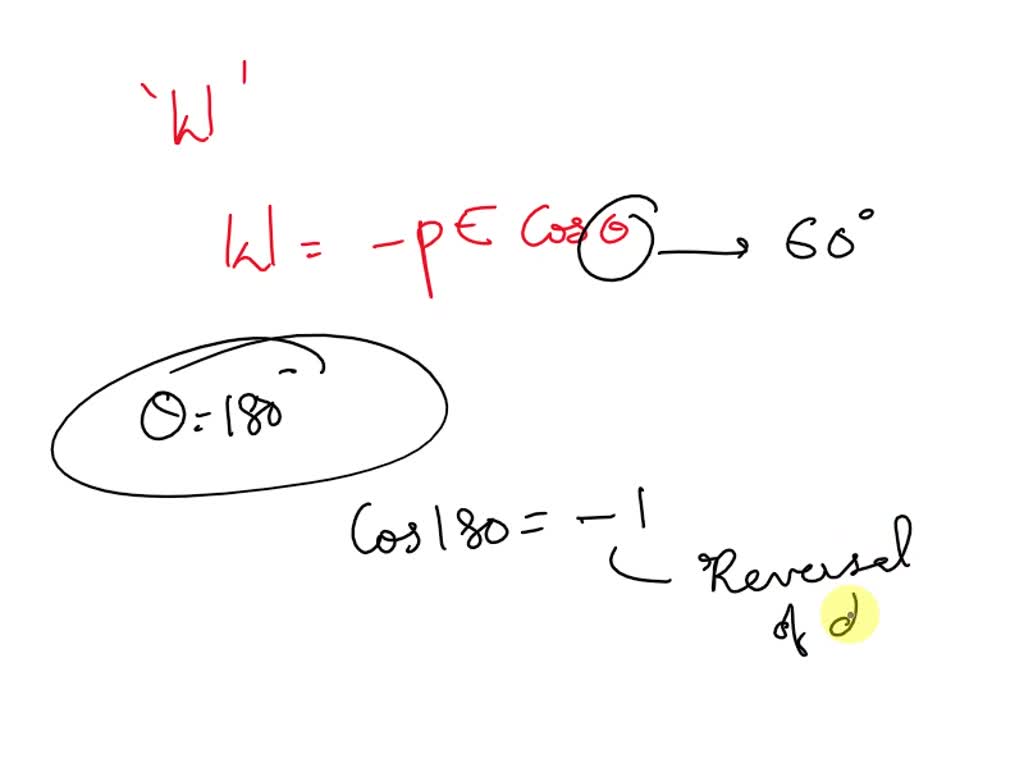 'W'
W = -pE Cos θ → 60°
θ = 180
Cos 180 = -1
Reversal
of d